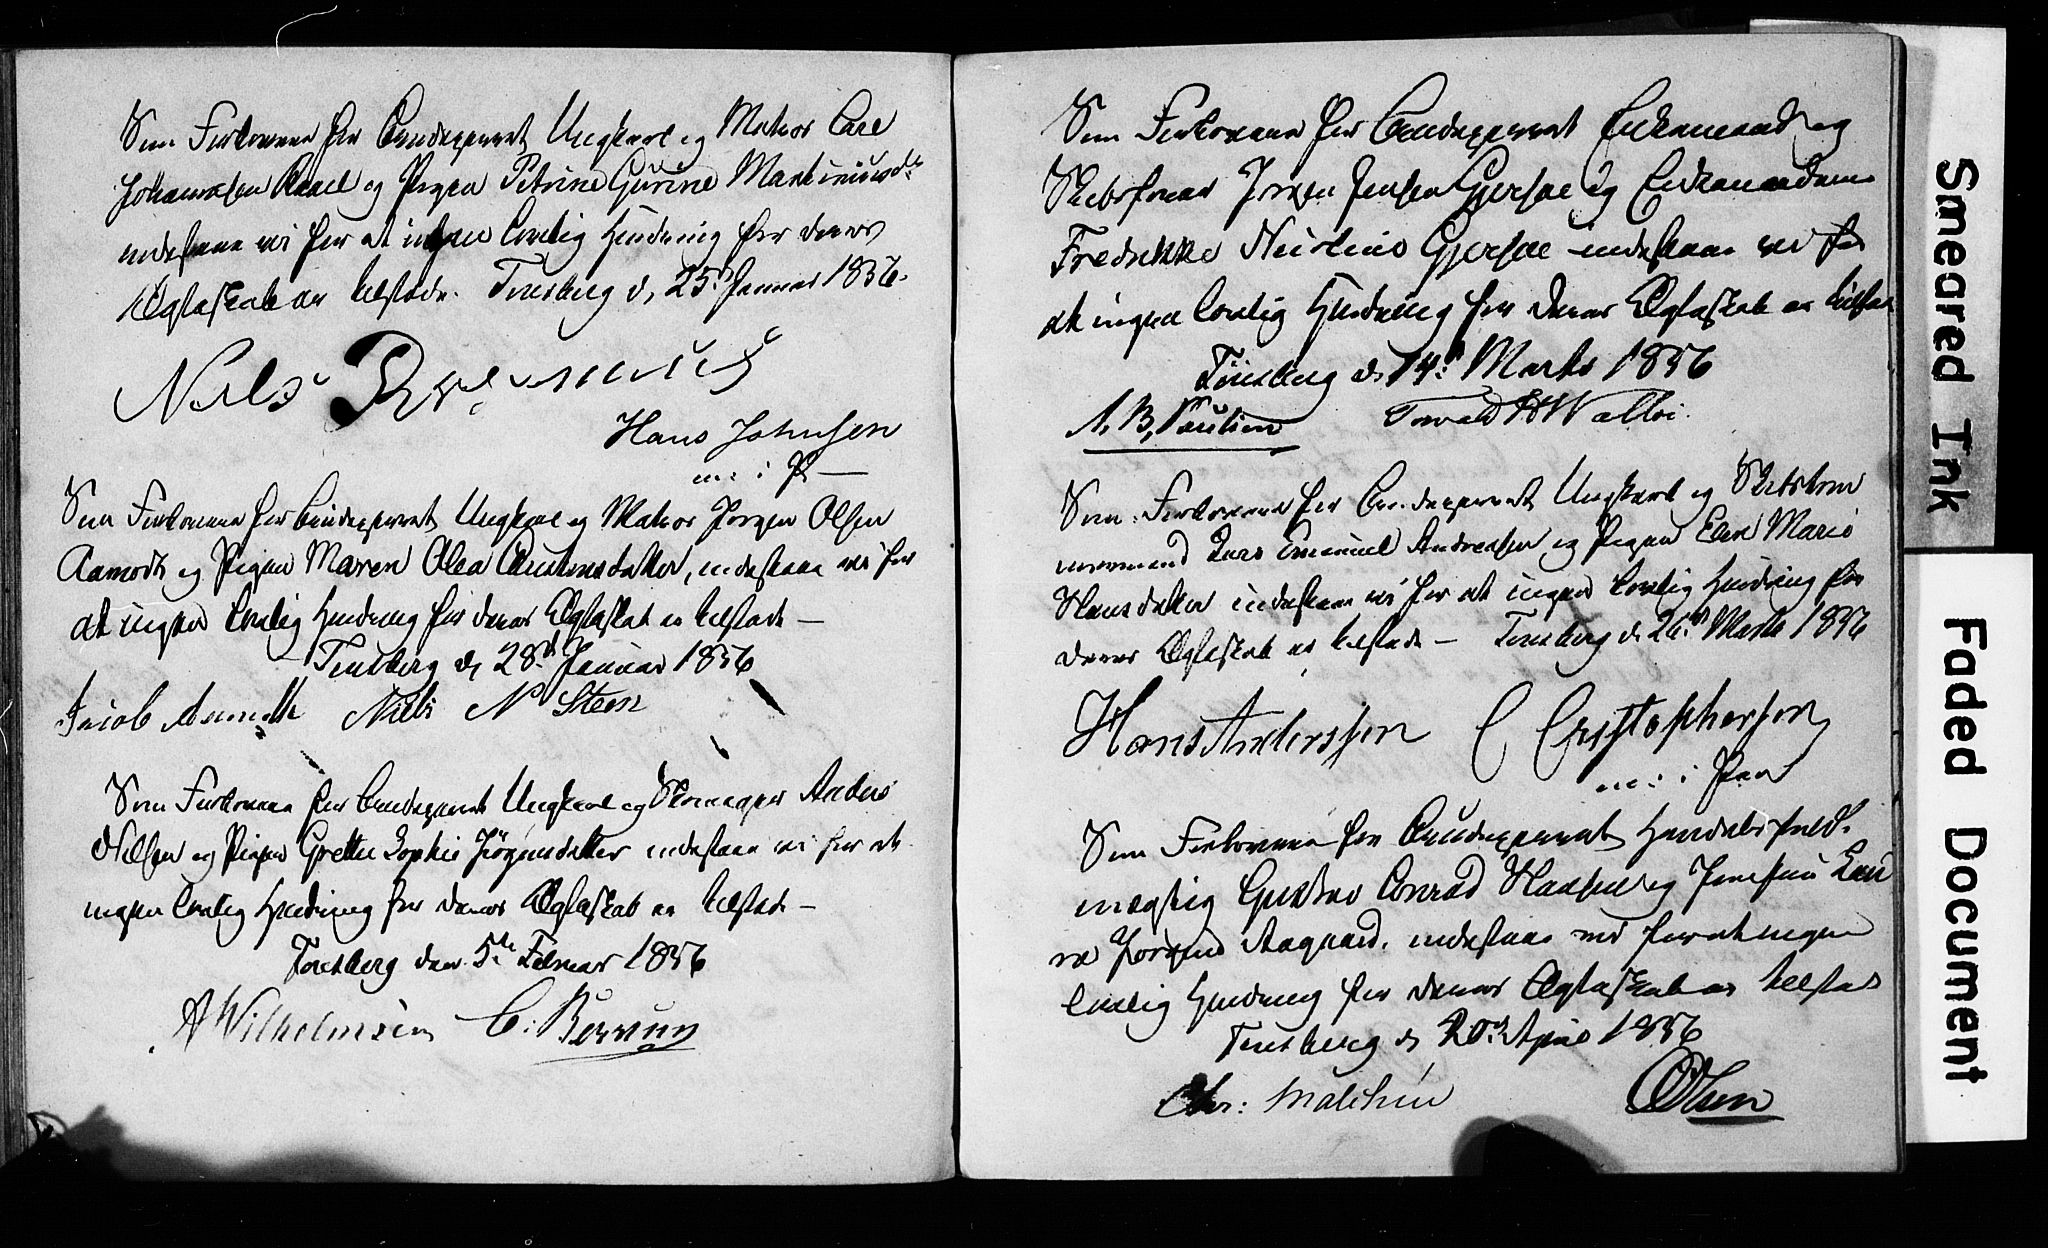 Som Forlovere for Brudeparret Ungkarl og Matros Carl
Johannesen og Pigen Petrine Gurine Martiniusdr
indestaae vi for at ingen lovlig Hindring for deres
Ægteskab er tilstede. Tønsberg d. 25de Januar 1856.
Niels
Hans Johnsen
m: i P
Som Forlovere for Brudeparret Ungkarl og Matros Jørgen Olsen
Aamodt og Pigen Maren Olea Christensdatter, indestaae vi for
at ingen lovlig Hindring for deres Ægteskab er tilstede –
Tønsberg d. 28de Januar 1856
Jacob Aamodt Niels N Steen
Som Forlovere for Brudeparret Ungkarl og Skomager Anders
Nilsen og Pigen Grethe Sophie Jörgensdatter indestaae vi for at
ingen lovlig Hindring for deres Ægteskab er tilstede –
Tønsberg den 5te Februar 1856
A Wilhelmsen C:
Som Forlovere for Brudeparret Enkemand og
Skibsfører Jørgen Jensen Gjersøe og Enkemadame
Fredrikke Gjersøe indestaae vi for
at ingen lovlig Hindring for deres Ægteskab er tilstede
Tönsberg d. 14de Marts 1856
A. B. Paulsen Torvald
Som Forlovere for Brudeparret Ungkarl og Skibstøm
mermand Lars Emanuel Andreassen og Pigen Elen Marie
Hansdatter indestaae vi for at ingen lovlig Hindring for
deres Ægteskab er tilstede – Tønsberg d. 26de Marts 1856
Hans Anderssen C Cristophersen
m: i Pen
Som Forlovere for Brudeparret Handelsfuld-
mægtig Gustav Conrad og Jomfru Lau
ra Jørgine Aagaard, indestaae vi for at ingen
lovlig Hindring for deres Ægteskab er tilstede
Tønsberg d. 20de April 1856
Chr: Malthin O Olsen
Smeared Ink
Faded Document